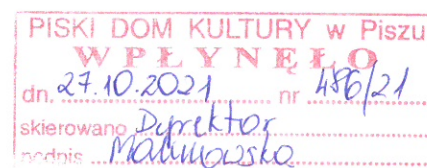 PISKI DOM KULTURY w Piszu
WPŁYNĘŁO
dn. 27.10.2021 nr 486/21
skierowano Dyrektor
podpis Malinowska